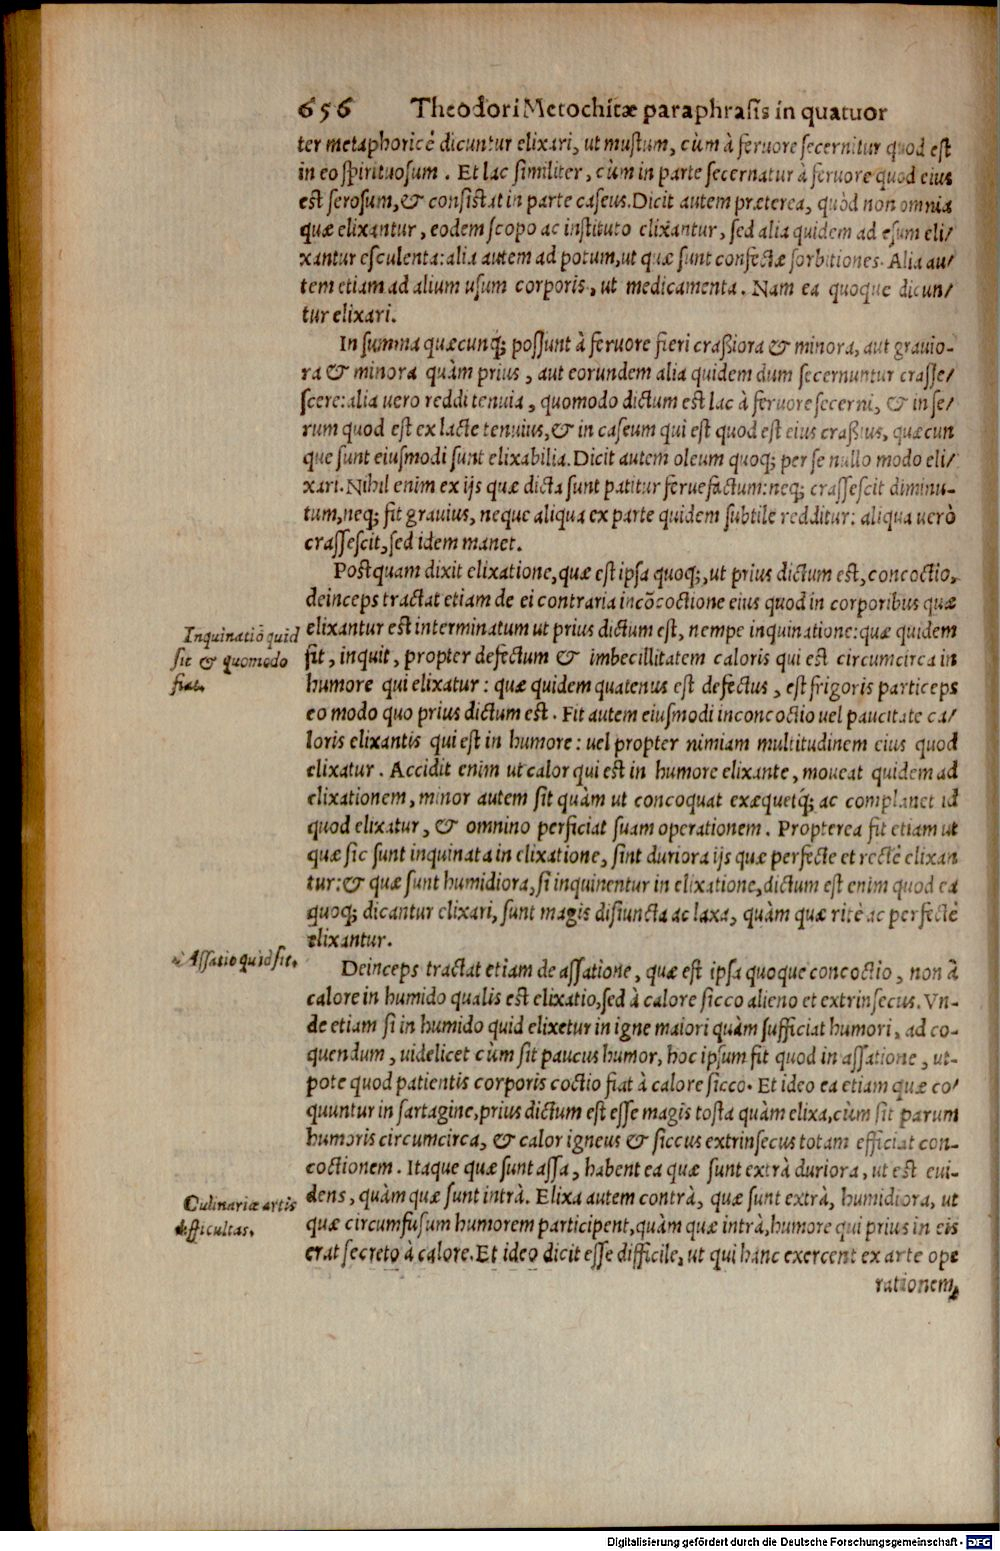 656 Theodori Metochitæ paraphrasis in quatuor
ter metaphoricè dicuntur elixari, ut mustum, cùm à feruore secernitur quod est
in eo spirituosum. Et lac similiter, cùm in parte secernatur à feruore quod eius
est serosum, & consistat in parte caseus. Dicit autem præterea, quòd non omnia
quæ elixantur, eodem scopo ac instituto elixantur, sed alia quidem ad esum eli/
xantur esculenta: alia autem ad potum, ut quæ sunt confectæ sorbitiones. Alia au/
tem etiam ad alium usum corporis, ut medicamenta. Nam ea quoque dicun/
tur elixari.
In summa quæcunq; possunt à feruore fieri craßiora & minora, aut grauio-
ra & minora quàm prius, aut eorundem alia quidem dum secernuntur crasse/
scere: alia uero reddi tenuia, quomodo dictum est lac à feruore secerni, & in se/
rum quod est ex lacte tenuius, & in caseum qui est quod est eius craßius, quæcun
que sunt eiusmodi sunt elixabilia. Dicit autem oleum quoq; per se nullo modo eli/
xari. Nihil enim ex ijs quæ dicta sunt patitur feruefactum: neq; crassescit diminu-
tum, neq; fit grauius, neque aliqua ex parte quidem subtile redditur: aliqua uerò
crassescit, sed idem manet.
Postquam dixit elixatione, quæ est ipsa quoq;, ut prius dictum est, concoctio,
deinceps tractat etiam de ei contraria incōcoctione eius quod in corporibus quæ
Inquinatiō quid
sit & quomodo
fiat.
elixantur est interminatum ut prius dictum est, nempe inquinatione: quæ quidem
fit, inquit, propter defectum & imbecillitatem caloris qui est circumcirca in
humore qui elixatur: quæ quidem quatenus est defectus, est frigoris particeps
eo modo quo prius dictum est. Fit autem eiusmodi inconcoctio uel paucitate ca/
loris elixantis qui est in humore: uel propter nimiam multitudinem eius quod
elixatur. Accidit enim ut calor qui est in humore elixante, moueat quidem ad
elixationem, minor autem sit quàm ut concoquat exæquetq́; ac complanet id
quod elixatur, & omnino perficiat suam operationem. Propterea fit etiam ut
quæ sic sunt inquinata in elixatione, sint duriora ijs quæ perfecte et rectè elixan
tur: & quæ sunt humidiora, si inquinentur in elixatione, dictum est enim quod ea
quoq; dicantur elixari, sunt magis disiuncta ac laxa, quàm quæ ritè ac perfectè
elixantur.
Assatio quid sit.
Deinceps tractat etiam de assatione, quæ est ipsa quoque concoctio, non à
calore in humido qualis est elixatio, sed à calore sicco alieno et extrinsecus. Vn-
de etiam si in humido quid elixetur in igne maiori quàm sufficiat humori, ad co-
quendum, uidelicet cùm sit paucus humor, hoc ipsum fit quod in assatione, ut-
pote quod patientis corporis coctio fiat à calore sicco. Et ideo ea etiam quæ co/
quuntur in sartagine, prius dictum est esse magis tosta quàm elixa, cùm sit parum
humoris circumcirca, & calor igneus & siccus extrinsecus totam efficiat con-
coctionem. Itaque quæ sunt assa, habent ea quæ sunt extrà duriora, ut est eui-
Culinariæ artis
difficultas.
dens, quàm quæ sunt intrà. Elixa autem contrà, quæ sunt extrà, humidiora, ut
quæ circumfusum humorem participent, quàm quæ intrà, humore qui prius in eis
erat secreto à calore. Et ideo dicit esse difficile, ut qui hanc exercent ex arte ope
rationem,
Digitalisierung gefördert durch die Deutsche Forschungsgemeinschaft - DFG